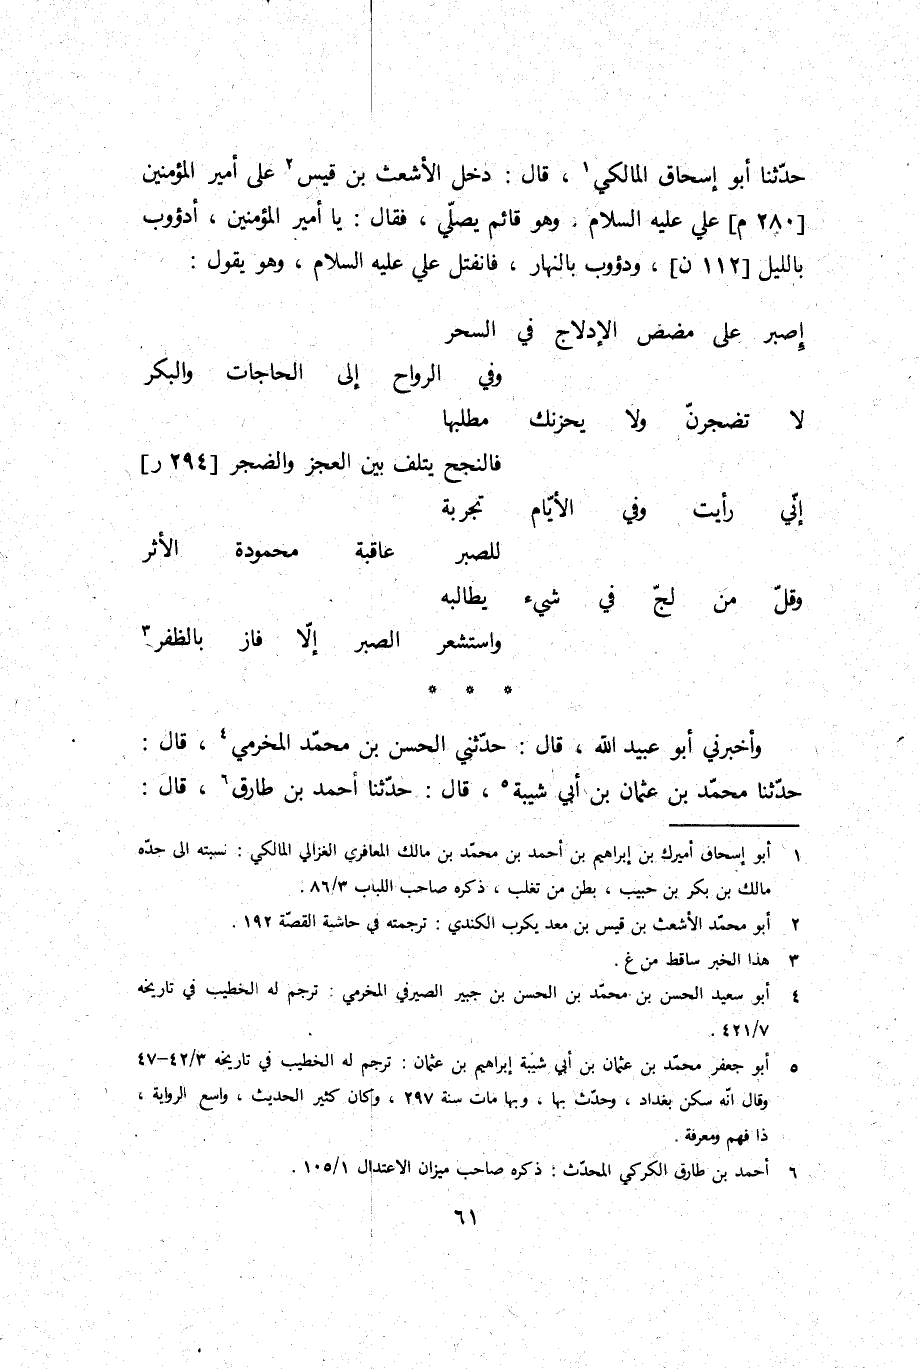 حدّثنا أبو إسحاق المالكي١ ، قال : دخل الأشعث بن قيس٢ على أمير المؤمنين
[٢٨٠ م] علي عليه السلام . وهو قائم يصلّي ، فقال : يا أمير المؤمنين ، أدؤوب
بالليل [١١٢ ن] ، ودؤوب بالنهار ، فانفتل علي عليه السلام ، وهو يقول :
إصبر على مضض الإدلاج في السحر
وفي الرواح إلى الحاجات والبكر
لا تضجرنّ ولا يحزنك مطلبها
فالنجح يتلف بين العجز والضجر [٢٩٤ ر]
إنّي رأيت وفي الأيّام تجربة
للصبر عاقبة محمودة الأثر
وقلّ من لجّ في شيء يطالبه
واستشعر الصبر إلّا فاز بالظفر٣
* * *
وأخبرني أبو عبيد الله ، قال : حدّثني الحسن بن محمّد المخرمي٤ ، قال :
حدّثنا محمّد بن عثمان بن أبي شيبة٥ ، قال : حدّثنا أحمد بن طارق٦ ، قال :
١ أبو إسحاق أميرك بن إبراهيم بن أحمد بن محمّد بن مالك المعافري الغزالي المالكي : نسبته الى جدّه
مالك بن بكر بن حبيب ، بطن من تغلب ، ذكره صاحب اللباب ٨٦/٣ .
٢ أبو محمّد الأشعث بن قيس بن معد يكرب الكندي : ترجمته في حاشية القصّة ١٩٢ .
٣ هذا الخبر ساقط من غ .
٤ أبو سعيد الحسن بن محمّد بن الحسن بن جبير الصيرفي المخرمي : ترجم له الخطيب في تاريخه
٤٢١/٧ .
٥ أبو جعفر محمّد بن عثمان بن أبي شيبة إبراهيم بن عثمان : ترجم له الخطيب في تاريخه ٤٢/٣–٤٧
وقال انّه سكن بغداد ، وحدّث بها ، وبها مات سنة ٢٩٧ ، وكان كثير الحديث ، واسع الرواية ،
ذا فهم ومعرفة .
٦ أحمد بن طارق الكركي المحدّث : ذكره صاحب ميزان الاعتدال ١٠٥/١ .
٦١